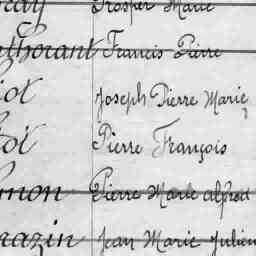 Prosper Marie
thorant Francis Pierre
iot Joseph Pierre Marie
Pierre François
mon Pierre Marie alfred
razin Jean Marie Julien